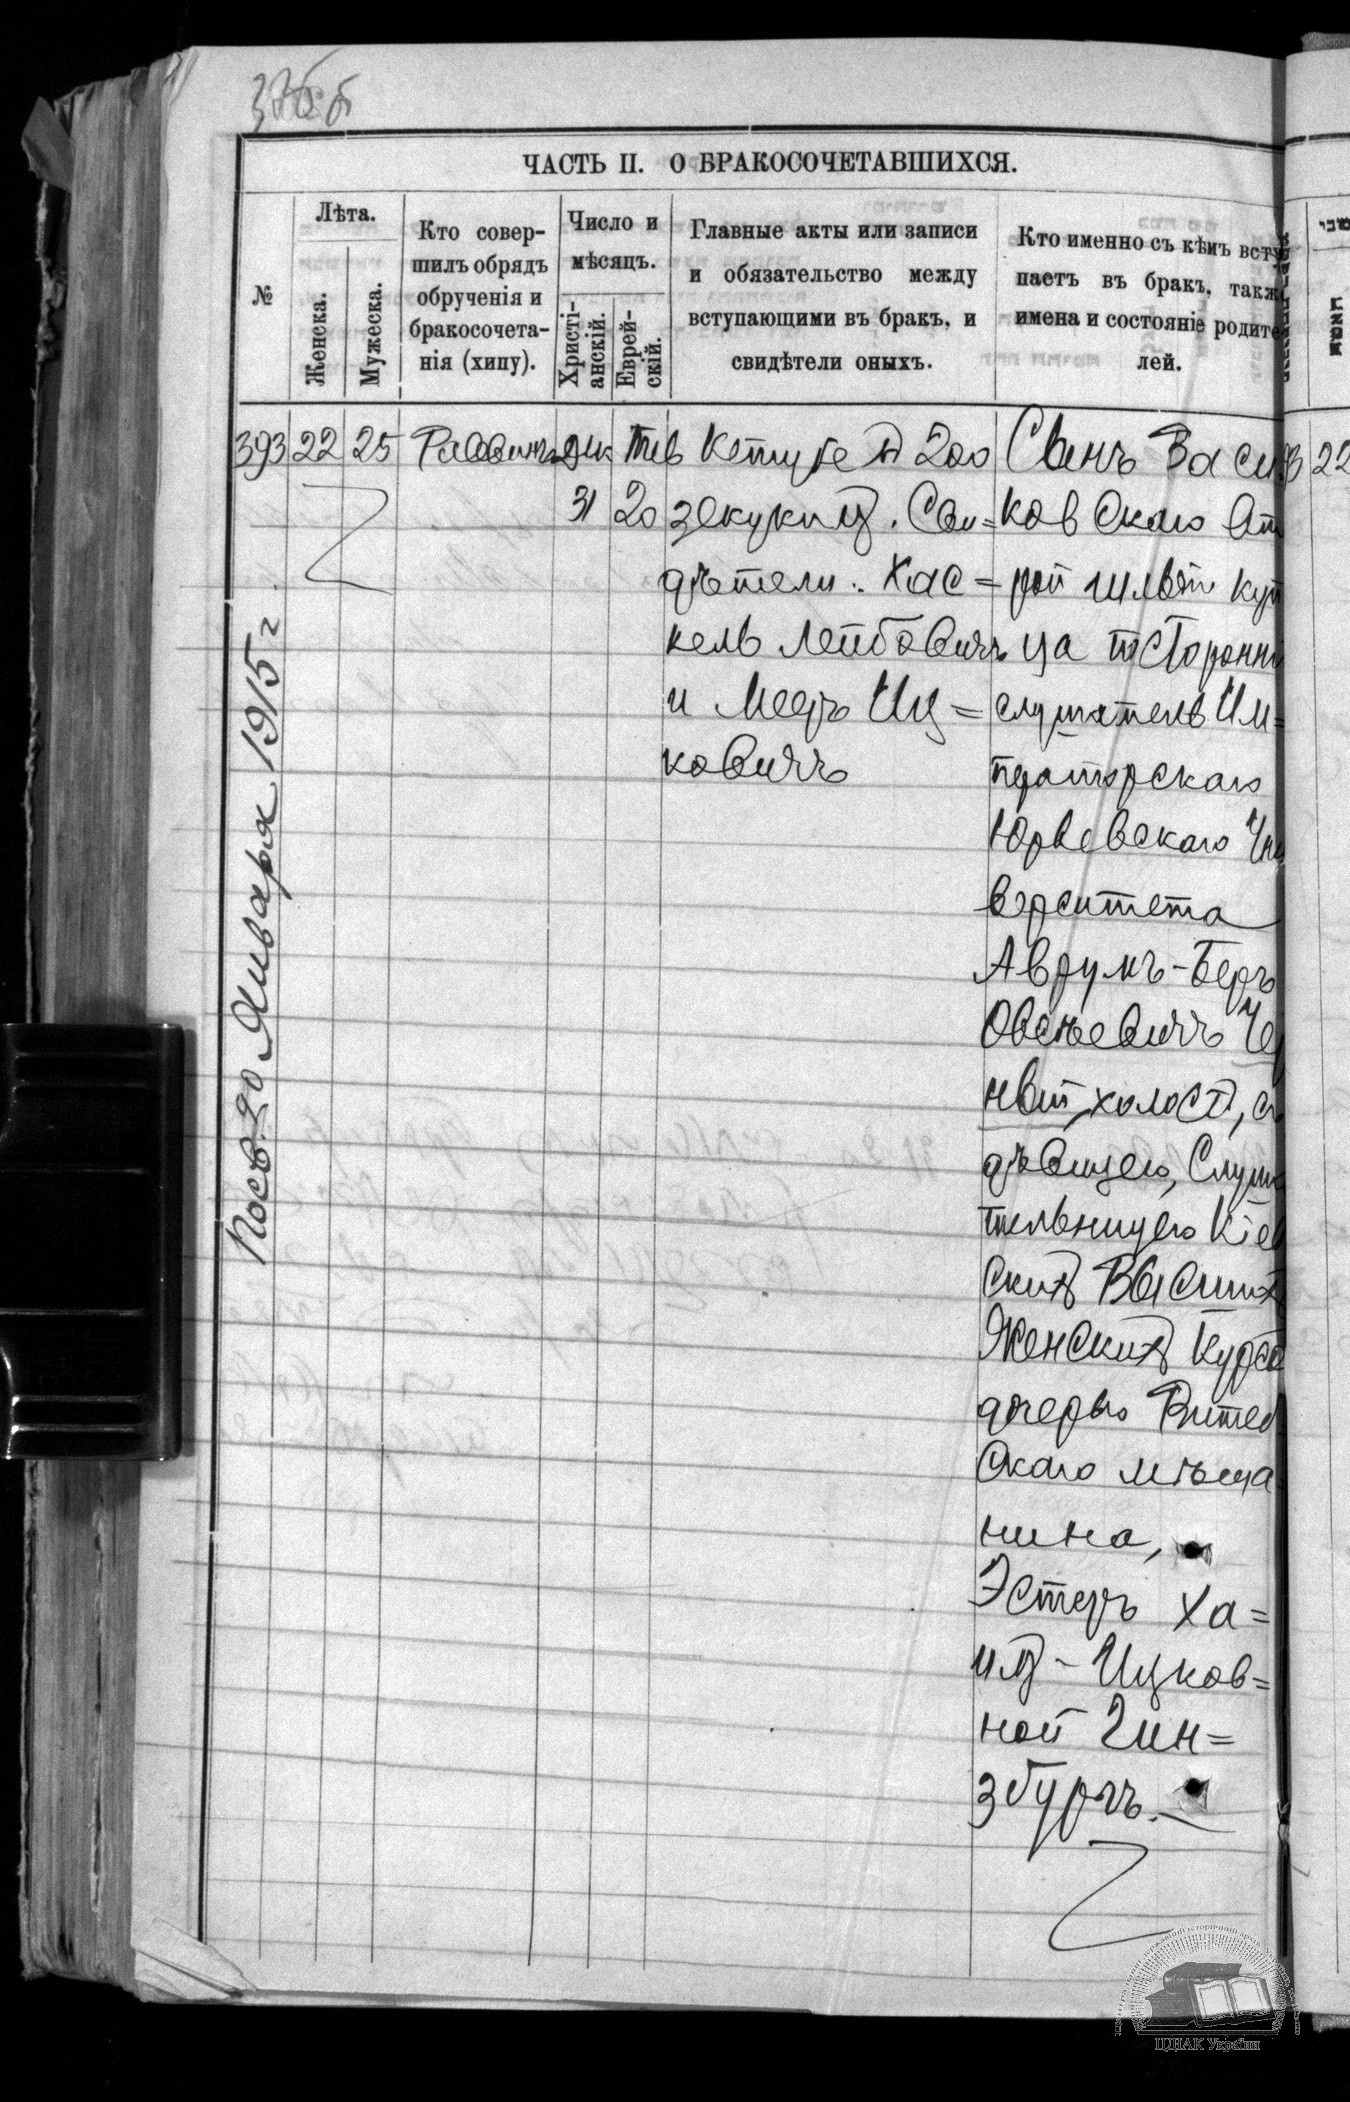 ЧАСТЬ II. О БРАКОСОЧЕТАВШИХСЯ.
№
Лѣта.
Женска.
Мужеска.
Кто совер-
шилъ обрядъ
обрученія и
бракосочета-
нія (хипу).
Число и
мѣсяцъ.
Христі-
анскій.
Еврей-
скій.
Главные акты или записи
и обязательство между
вступающими въ бракъ, и
свидѣтели оныхъ.
Кто именно съ кѣмъ всту
паетъ въ бракъ, такж
имена и состояніе родите
лей.
393
22
25
Раввинъ
Дек
31
Тев
20
Кетубе въ 200
зекукимъ. Сви=
дѣтели: Хас=
кель Лейбовичъ
и Мееръ Иц=
ковичъ
Сынъ Васи
ковскаго 2т
рой гильдіи куп
ца посторонні
слушатель Им=
ператорскаго
Юрьевскаго Уни
верситета
Аврумъ-Беръ
Овсѣевичъ Чер
ный, холостъ, съ
дѣвицею, Слуша
тельницею Кіев
скихъ Высшихъ
Женскихъ Курсо
дочерью Витеб
скаго мѣща
нина,
Эстеръ Ха=
имъ-Ицков=
ной Гин=
збургъ.
20 Января 1915 г.
22
ЦДІАК України